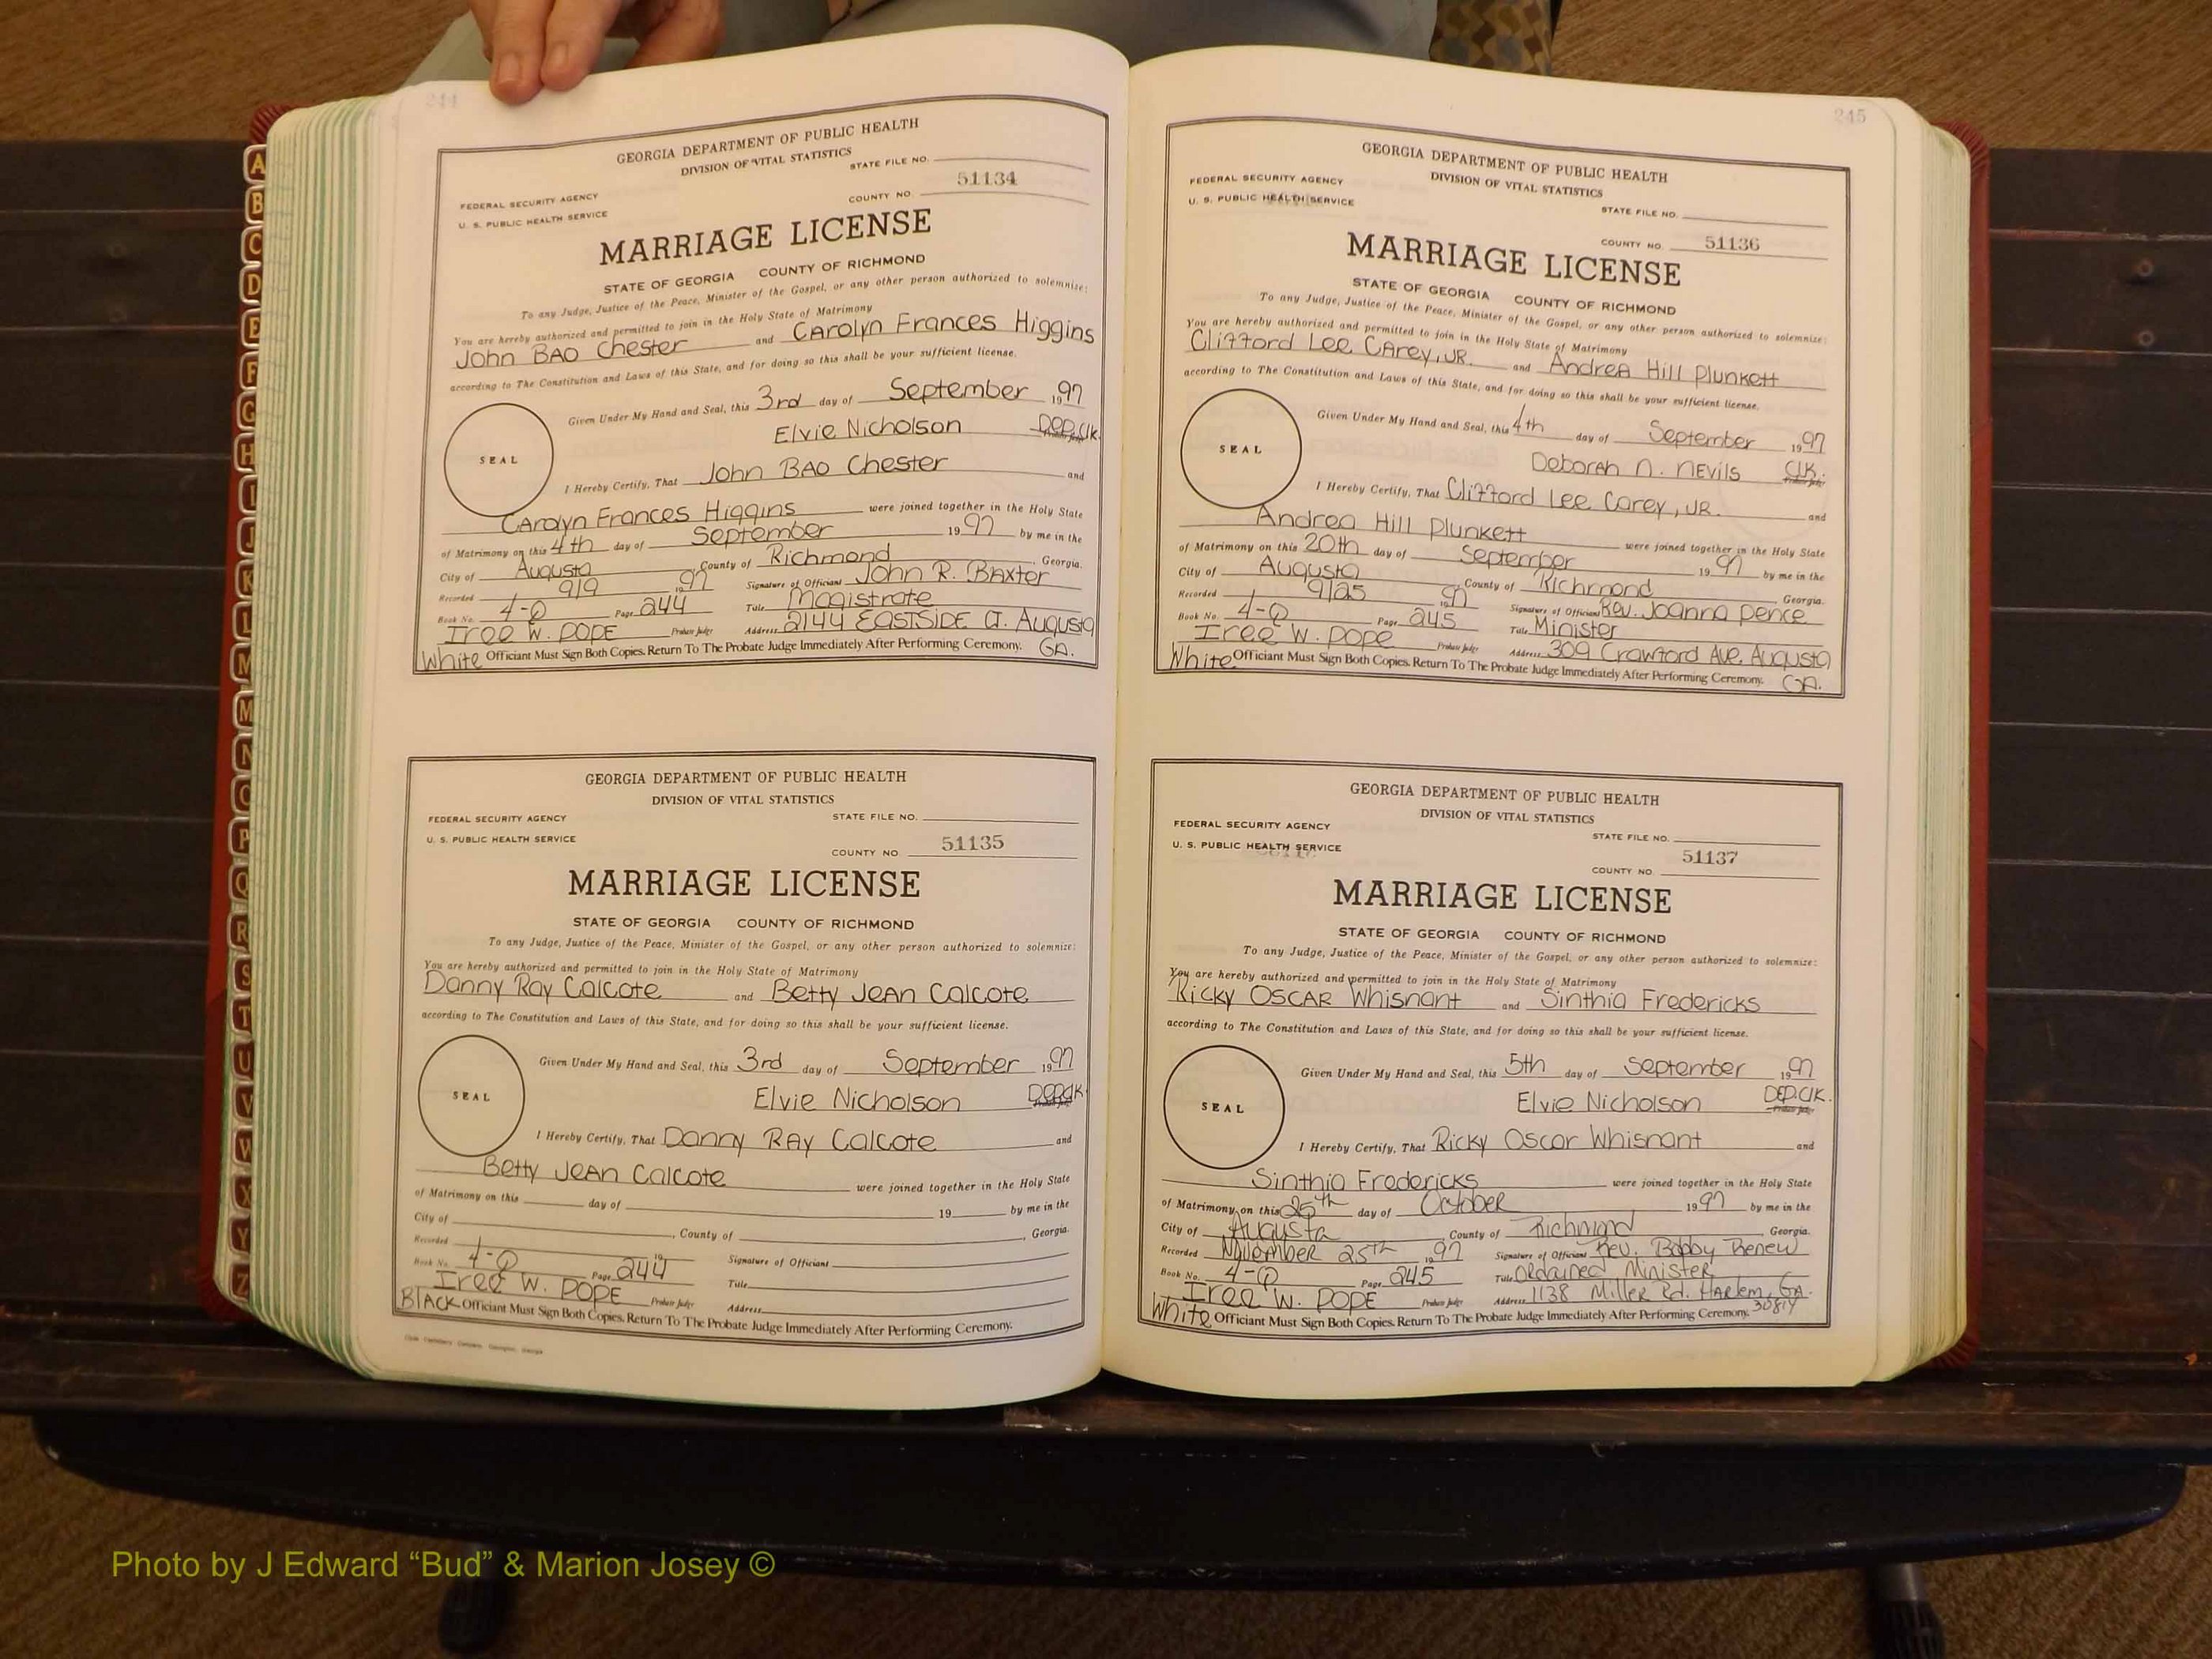 244
GEORGIA DEPARTMENT OF PUBLIC HEALTH
DIVISION OF VITAL STATISTICS
STATE FILE NO.
FEDERAL SECURITY AGENCY
U. S. PUBLIC HEALTH SERVICE
COUNTY NO. 51134
MARRIAGE LICENSE
STATE OF GEORGIA COUNTY OF RICHMOND
To any Judge, Justice of the Peace, Minister of the Gospel, or any other person authorized to solemnize:
You are hereby authorized and permitted to join in the Holy State of Matrimony
John BAO Chester and Carolyn Frances Higgins
according to The Constitution and Laws of this State, and for doing so this shall be your sufficient license.
Given Under My Hand and Seal, this 3rd day of September 1997
Elvie Nicholson DEP. Clk.
SEAL
I Hereby Certify, That John BAO Chester and
Carolyn Frances Higgins were joined together in the Holy State
of Matrimony on this 4th day of September 1997 by me in the
City of Augusta, County of Richmond, Georgia.
Recorded 9/9 1997 Signature of Officiant John R. Baxter
Book No. 4-Q Page 244 Title Magistrate
Iree W. Pope Probate Judge Address 2144 EASTSIDE CT. Augusta
White Officiant Must Sign Both Copies. Return To The Probate Judge Immediately After Performing Ceremony. GA.
GEORGIA DEPARTMENT OF PUBLIC HEALTH
DIVISION OF VITAL STATISTICS
FEDERAL SECURITY AGENCY STATE FILE NO.
U. S. PUBLIC HEALTH SERVICE
COUNTY NO 51135
MARRIAGE LICENSE
STATE OF GEORGIA COUNTY OF RICHMOND
To any Judge, Justice of the Peace, Minister of the Gospel, or any other person authorized to solemnize:
You are hereby authorized and permitted to join in the Holy State of Matrimony
Danny Ray Calcote and Betty Jean Calcote
according to The Constitution and Laws of this State, and for doing so this shall be your sufficient license.
Given Under My Hand and Seal, this 3rd day of September 1997
Elvie Nicholson DEP. Clk
SEAL
I Hereby Certify, That Danny Ray Calcote and
Betty Jean Calcote were joined together in the Holy State
of Matrimony on this day of 19 by me in the
City of , County of , Georgia.
Recorded 19 Signature of Officiant
Book No. 4-Q Page 244 Title
Iree W. Pope Probate Judge Address
BLACK Officiant Must Sign Both Copies. Return To The Probate Judge Immediately After Performing Ceremony.
245
GEORGIA DEPARTMENT OF PUBLIC HEALTH
DIVISION OF VITAL STATISTICS
FEDERAL SECURITY AGENCY
U. S. PUBLIC HEALTH SERVICE
STATE FILE NO.
COUNTY NO. 51136
MARRIAGE LICENSE
STATE OF GEORGIA COUNTY OF RICHMOND
To any Judge, Justice of the Peace, Minister of the Gospel, or any other person authorized to solemnize:
You are hereby authorized and permitted to join in the Holy State of Matrimony
Clifford Lee Carey, JR. and Andrea Hill Plunkett
according to The Constitution and Laws of this State, and for doing so this shall be your sufficient license.
Given Under My Hand and Seal, this 4th day of September 1997
Deborah N. Nevils Clk.
SEAL
I Hereby Certify, That Clifford Lee Carey, JR. and
Andrea Hill Plunkett were joined together in the Holy State
of Matrimony on this 20th day of September 1997 by me in the
City of Augusta, County of Richmond Georgia.
Recorded 9/25 1997 Signature of Officiant Rev. Joanna Pence
Book No. 4-Q Page 245 Title Minister
Iree W. Pope Probate Judge Address 309 Crawford Ave, Augusta
White Officiant Must Sign Both Copies. Return To The Probate Judge Immediately After Performing Ceremony. GA.
GEORGIA DEPARTMENT OF PUBLIC HEALTH
DIVISION OF VITAL STATISTICS
FEDERAL SECURITY AGENCY
U. S. PUBLIC HEALTH SERVICE
STATE FILE NO.
COUNTY NO. 51137
MARRIAGE LICENSE
STATE OF GEORGIA COUNTY OF RICHMOND
To any Judge, Justice of the Peace, Minister of the Gospel, or any other person authorized to solemnize:
You are hereby authorized and permitted to join in the Holy State of Matrimony
Ricky Oscar Whisnant and Sinthia Fredericks
according to The Constitution and Laws of this State, and for doing so this shall be your sufficient license.
Given Under My Hand and Seal, this 5th day of September 1997
Elvie Nicholson DEP. Clk.
SEAL
I Hereby Certify, That Ricky Oscar Whisnant and
Sinthia Fredericks were joined together in the Holy State
of Matrimony on this 25th day of October 1997 by me in the
City of Augusta, County of Richmond, Georgia.
Recorded November 25th 1997 Signature of Officiant Rev. Bobby Renew
Book No. 4-Q Page 245 Title Ordained Minister
Iree W. Pope Probate Judge Address 1138 Miller Rd. Harlem, GA. 30814
White Officiant Must Sign Both Copies. Return To The Probate Judge Immediately After Performing Ceremony.
A
B
C
D
E
F
G
H
I
J
K
L
M
M
N
O
P
Q
R
S
T
U
V
W
X
Y
Z
Photo by J Edward “Bud” & Marion Josey ©